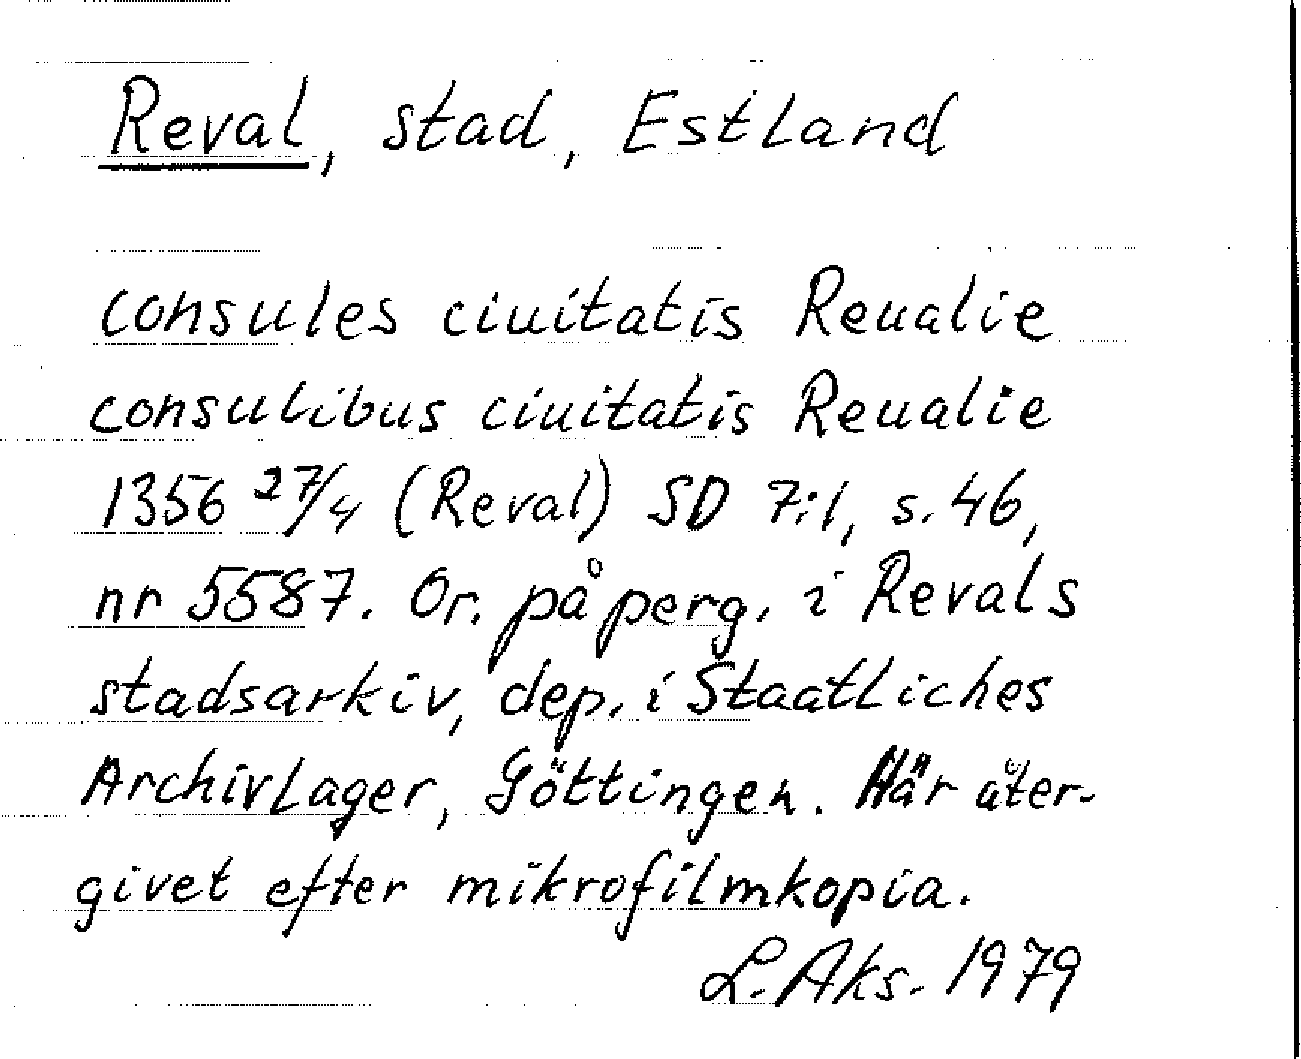 Reval, stad, Estland
consules ciuitatis Reualie
consulibus ciuitatis Reualie
1356 27/4 (Reval) SD 7:1, s. 46,
nr 5587. Or. på perg. i Revals
stadsarkiv, dep. i Staatliches
Archivlager, Göttingen. Här åter-
givet efter mikrofilmkopia.
L. Aks. 1979